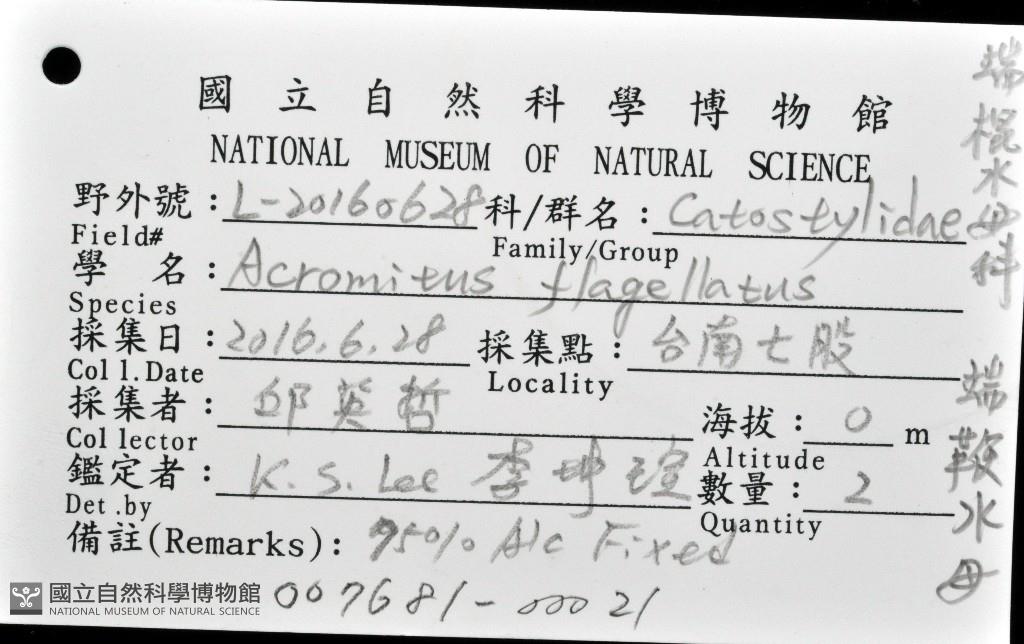 國立自然科學博物館
NATIONAL MUSEUM OF NATURAL SCIENCE
野外號：L-20160628 科/群名：Catostylidae
Field# Family/Group
學 名：Acromitus flagellatus
Species
採集日：2016.6.28 採集點：台南七股
Coll.Date Locality
採集者：邱英哲 海拔：0 m
Collector Altitude
鑑定者：K.S. Lee 李坤瑄 數量：2
Det.by Quantity
備註(Remarks)：95% Alc Fixed
007681-00021
端棍水母科
端鞭水母
國立自然科學博物館
NATIONAL MUSEUM OF NATURAL SCIENCE